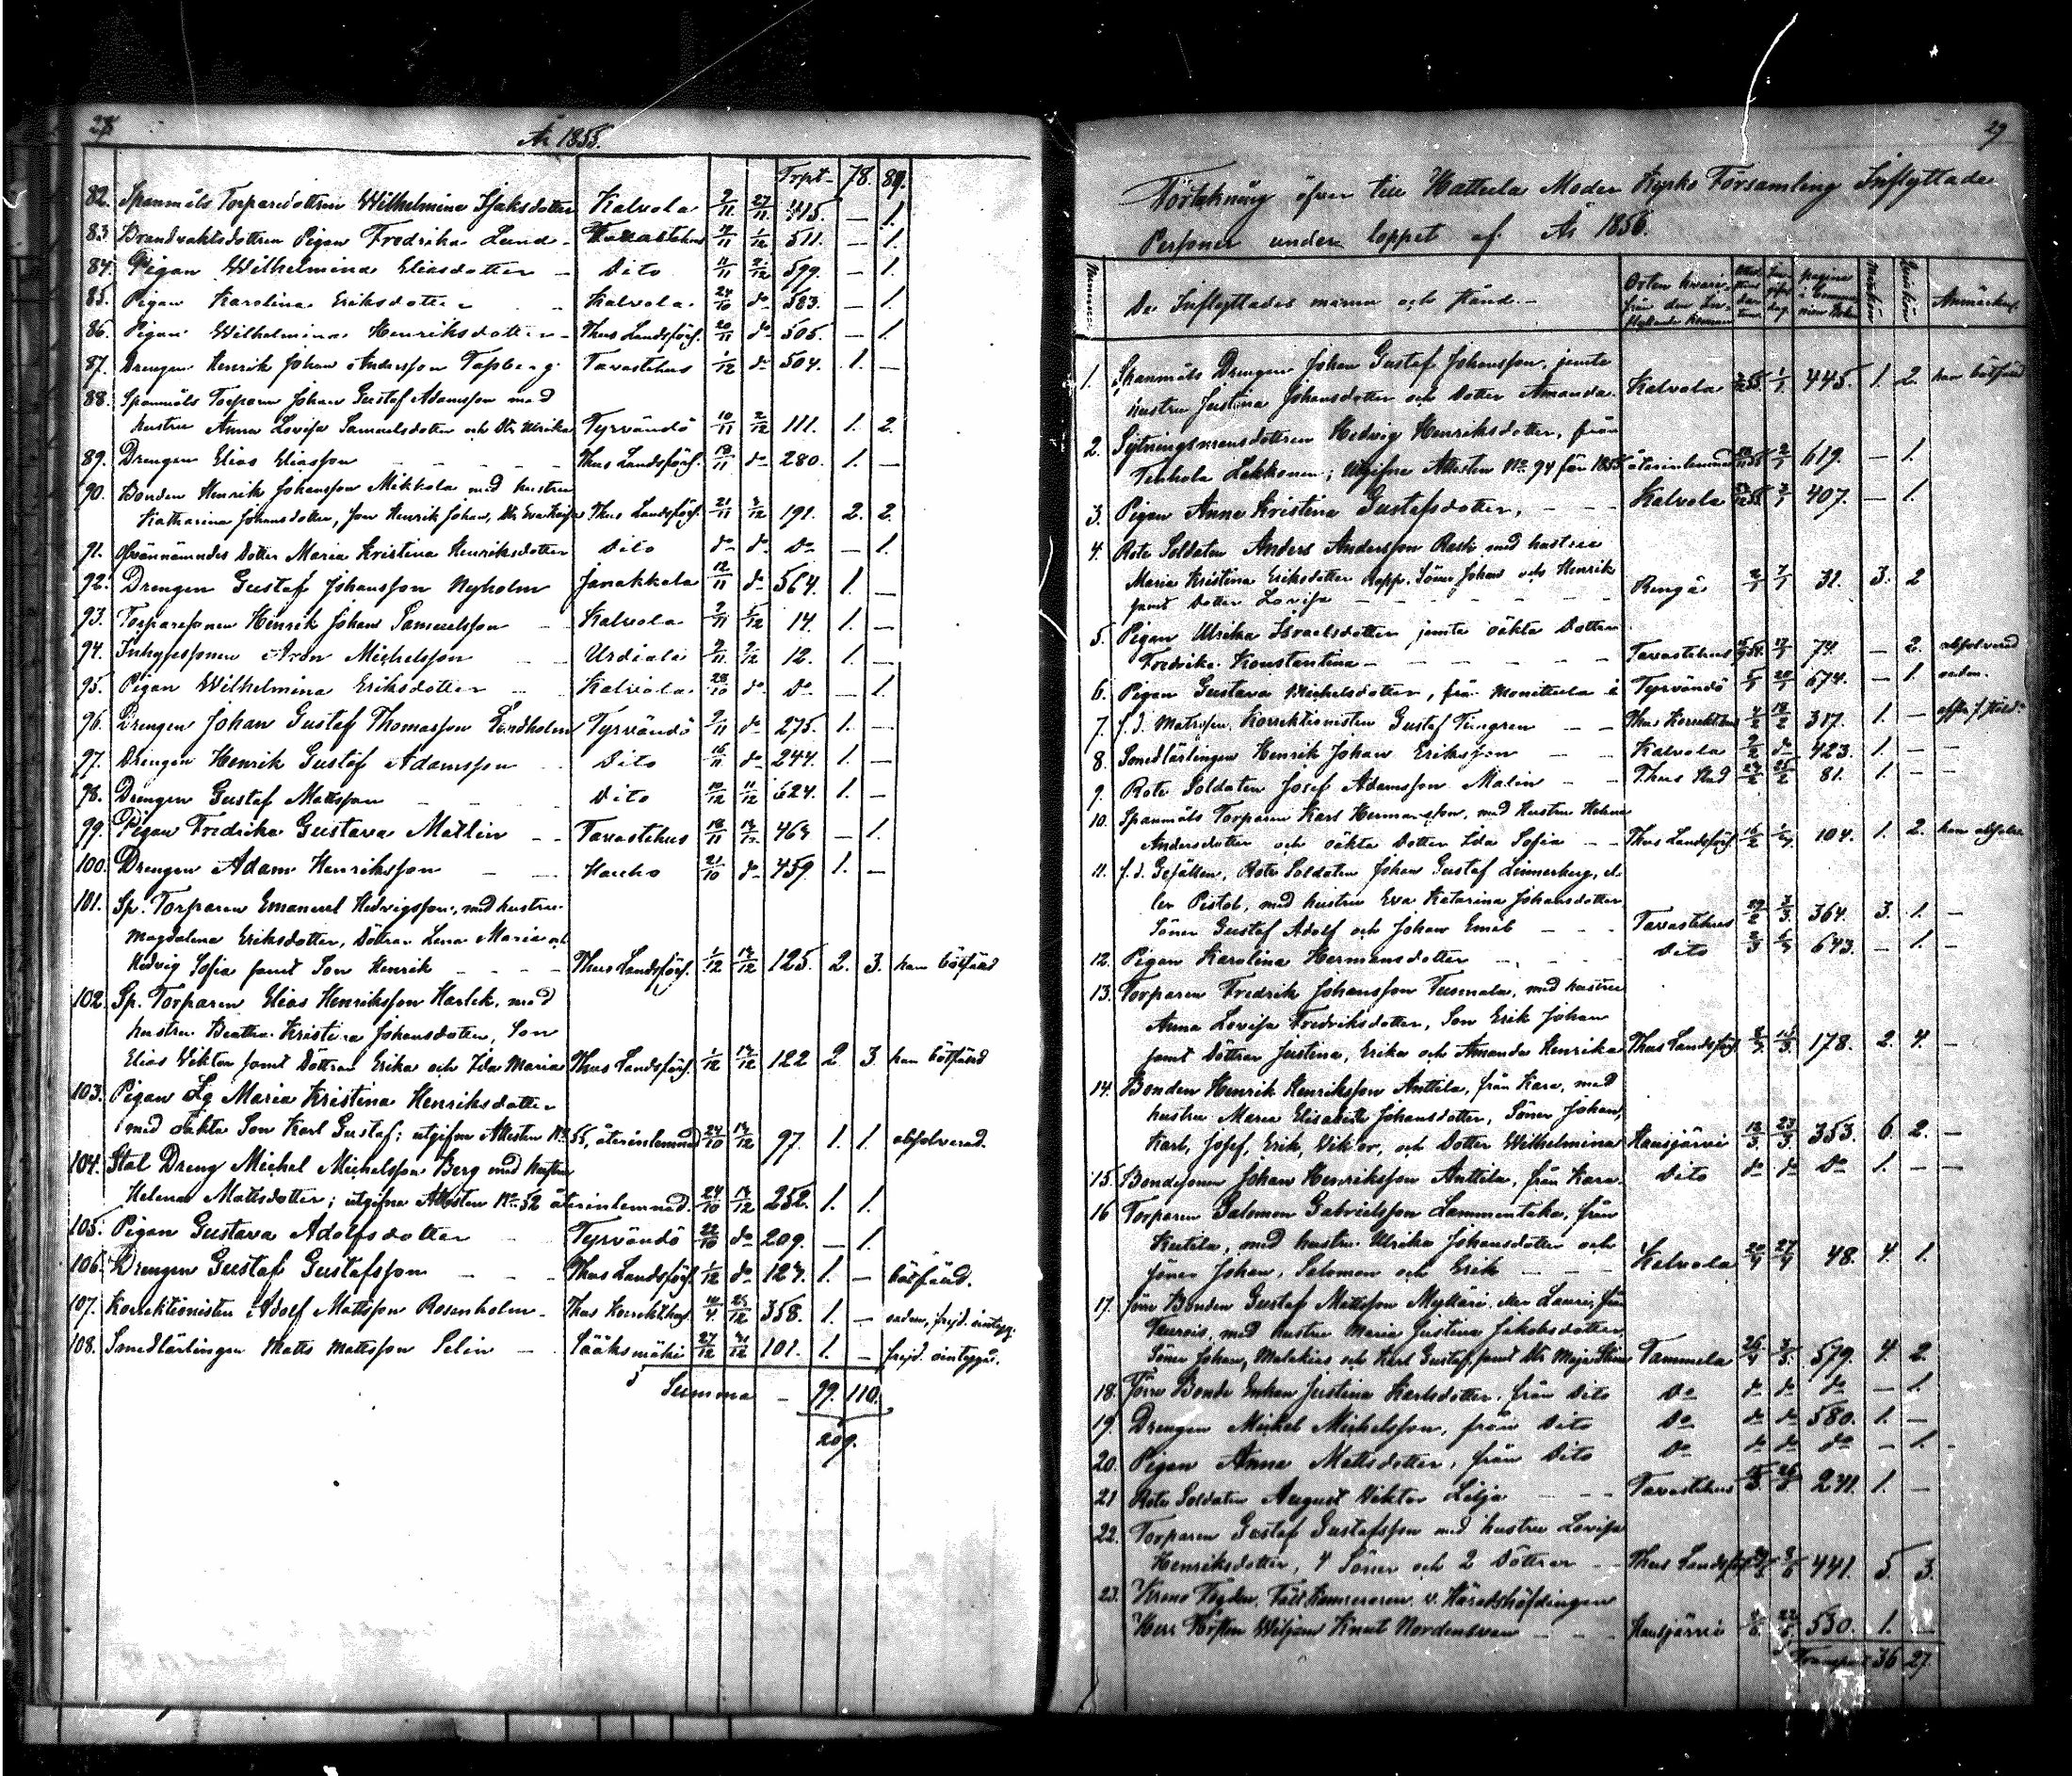 28
År 1855.
Trpt - 78. 89.
82. Spanmåls Torparedottren Wilhelmina Isaksdotter Kalvola 2/11 27/11 445. — 1.
83. Brandvaktsdottren Pigan Fredrika Lund - Tavastehus 1/12 511. — 1.
84. Pigan Wilhelmina Eliasdotter — Dito 11/11 2/12 599. — 1.
85. Pigan Karolina Eriksdotter Kalvola 24/10 do 523. — 1.
86. Pigan Wilhelmina Henriksdotter - Thus Landsförs. 20/11 do 505. — 1.
87. Drengen Henrik Johan Andersson Tapberg Tavastehus 1/12 do 504. 1. —
88. Spanmåls Torparn Johan Gustaf Adamsson med
hustru Anna Lovisa Samuelsdotter och Dtr Ulrika Tyrvändö 10/11 2/12 111. 1. 2.
89. Drengen Elias Eliasson Thus Landsförs. 19/11 do 280. 1. —
90. Bonden Henrik Johansson Mikkola med hustru
Katharina Johansdotter, Son Henrik Johan, Dtr Eva Kaisa Thus Landsförs. 21/11 4/12 191. 2. 2.
91. Ofvannämndes Dotter Maria Kristina Henriksdotter Dito do do Do — 1.
92. Drengen Gustaf Johansson Nyholm Janakkala 12/11 do 564. 1. —
93. Torparesonen Henrik Johan Samuelsson Kalvola 2/11 5/12 14. 1. —
94. Inhysessonen Aron Michelsson — — Urdiala 2/11 9/12 12. 1. —
95. Pigan Wilhelmina Eriksdotter — Kalvola 28/10 do Do — 1.
96. Drengen Johan Gustaf Thomasson Lindholm Tyrvändö 9/11 do 275. 1. —
97. Drengen Henrik Gustaf Adamsson Dito 16/11 do 244. 1. —
98. Drengen Gustaf Mattsson — — Dito 10/12 11/12 624. 1. —
99. Pigan Fredrika Gustava Mallin — - Tavastehus 18/11 14/12 464 — 1.
100. Drengen Adam Henriksson — — Hauho 21/10 do 459 1. —
101. Sp. Torparen Emanuel Hedvigsson, med hustru
Magdalena Eriksdotter, Döttrar Lena Maria och
Hedvig Sofia samt Son Henrik — — — Thus Landsförs. 1/12 14/12 125. 2. 3. han bötfäld
102. Sp. Torparen Elias Henriksson Harlek, med
hustru Beatha Kristina Johansdotter, Son
Elias Viktor samt Döttrar Erika och Ida Maria Thus Landsförs. 1/12 14/12 122 2 3. han bötfäld
103. Pigan Lg Maria Kristina Henriksdotter
med oäkta Son Karl Gustaf; utgifne Attesten No 55, återinlemnad 24/10 14/12 97. 1. 1. absolverad.
104. Stat Dreng Michel Michelsson Berg med hustru
Helena Mattsdotter; utgifne Attesten No 52 återinlemnad. 24/10 14/12 252. 1. 1.
105. Pigan Gustava Adolfsdotter — Tyrvändö 22/10 do 209. — 1.
106. Drengen Gustaf Gustafsson — — Thus Landsförs. 1/12 do 124. 1. — bötfäld.
107. Korrektionisten Adolf Mattsson Rosenholm - Thus Korrekt.hus. 358. 1. —
108. Smedlärlingen Matts Mattsson Selin — Sääksmäki 27/12 31/12 101. 1. —
Summa — 99. 110.
209.
29
Förtekning öfver till Hattula Moder Kyrko Församling Inflyttade
Personer under loppet af År 1856.
Numero. De Inflyttades namn och stånd. - Orten hvarifrån den Inflyttande kommer Attestens datum. pagina i Kommunion Boken Mankön Qvinkön Anmärkn.
1. Spanmåls Drengen Johan Gustaf Johansson, jemte
hustru Justina Johansdotter och Dotter Amanda. Kalvola 445. 1. 2. han bötfäld
2. Sytningsmansdottren Hedvig Henriksdotter, från
Tenhola Lekkonen; utgifne Attesten No 94 för 1855 återinlemnad 619. — 1.
3. Pigan Anna Kristina Gustafsdotter, — — Kalvola 407. — 1.
4. Rote Soldaten Anders Andersson Rask med hustru
Maria Kristina Eriksdotter Rapp, Söner Johan och Henrik
samt Dotter Lovisa — — — Rengå 7/1 32. 3. 2
5. Pigan Ulrika Israelsdotter jemte oäkta Dotter
Fredrika Konstantina — — — — Tavastehus 74. — 2. absolverad
6. Pigan Gustava Michelsdotter, från Monittula i Tyrvändö 674. — 1.
7. f.d. Matrosen, Korrektionisten Gustaf Tengren — — Thus Korrekthus 4/2 18/2 317. 1. —
8. Smedlärlingen Henrik Johan Eriksson — Kalvola do 423. 1. — —
9. Rote Soldaten Josef Adamsson Malin — — Thus Stad 24/2 25/2 81. 1. — —
10. Spanmåls Torparen Karl Hermansson, med Hustru Helena
Andersdotter och oäkta Dotter Ida Sofia — — Thus Landsförs. 16/2 104. 1. 2. han absolv.
11. f.d. Gefällen, Rote Soldaten Johan Gustaf Linnerberg, eller
Pistol, med hustru Eva Katarina Johansdotter
Söner Gustaf Adolf och Johan Emil — — Tavastehus 29/2 3/3 364. 3. 1. —
12. Pigan Karolina Hermansdotter — — Dito 643. — 1. —
13. Torparen Fredrik Johansson Tusmala, med hustru
Anna Lovisa Fredriksdotter, Son Erik Johan
samt Döttrar Justina, Erika och Amanda Henrika Thus Landsförs. 178. 2. 4. —
14. Bonden Henrik Henriksson Anttila, från Kara, med
hustru Maria Elisabeth Johansdotter, Söner Johan,
Karl, Josef, Erik, Viktor, och Dotter Wilhelmina Hausjärvi 12/3 23/3 353. 6. 2. —
15. Bondesonen Johan Henriksson Anttila, från Kara Dito do do Do 1. — —
16 Torparen Salomon Gabrielsson Lammentaka, från
Kutila, med hustru Ulrika Johansdotter och
söner Johan, Salomon och Erik — — — Kalvola 20/4 27/4 48. 4. 1.
17. förre Bonden Gustaf Mattsson Mylläri, eller Lauri, från
Teurois, med hustru Maria Justina Jakobsdotter,
Söner Johan, Malakias och Karl Gustaf, samt Dtr Maja Stina Tammela 579. 4. 2.
18. förre Bonde Enkan Justina Karlsdotter, från Dito Do do do do — 1.
19. Drengen Michel Michelsson, från Dito Do do do 580. 1. —
20. Pigan Anna Mattsdotter, från Dito Do do do do — 1. -
21 Rote Soldaten August Viktor Lilja — — Tavastehus 241. 1. —
22. Torparen Gustaf Gustafsson med hustru Lovisa
Henriksdotter, 4 Söner och 2 Döttrar — Thus Landsförs. 441. 5. 3.
23. Krono Fogden, Fält Kamreraren, v. Häradshöfdingen
Herr Thorsten Wiljam Knut Nordensvan — — Hausjärvi 530. 1. —
Transport 36 27.